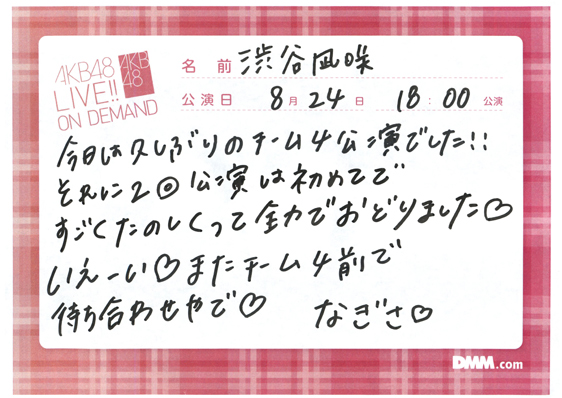 AKB48
LIVE!!
ON DEMAND
AKB
48
名前 渋谷凪咲
公演日 8月24日 18:00公演
今日は久しぶりのチーム4公演でした!!
それに2◎公演は初めてで
すごくたのしくって全力でおどりました♡
いえーい♡またチーム4前で
待ち合わせやで♡ なぎさ♡
DMM.com